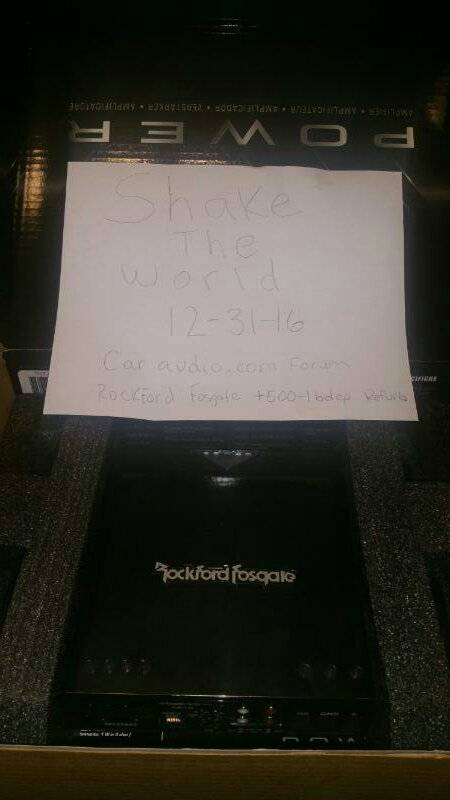 AMPLIFIER • AMPLIFICATEUR • AMPLIFICADOR • VERSTÄRKER • AMPLIFICATORE
POWER
Shake
The
World
12-31-16
Caraudio.com Forum
Rockford Fosgate +500-1bdcp Refurb
Rockford Fosgate
POW